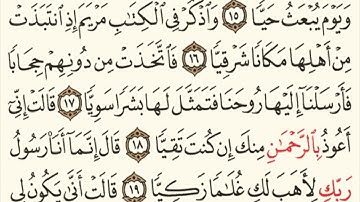 وَيَوْمَ يُبْعَثُ حَيًّا ١٥ وَاذْكُرْ فِي الْكِتَابِ مَرْيَمَ إِذِ انْتَبَذَتْ
مِنْ أَهْلِهَا مَكَانًا شَرْقِيًّا ١٦ فَاتَّخَذَتْ مِنْ دُونِهِمْ حِجَابًا
فَأَرْسَلْنَا إِلَيْهَا رُوحَنَا فَتَمَثَّلَ لَهَا بَشَرًا سَوِيًّا ١٧ قَالَتْ إِنِّي
أَعُوذُ بِالرَّحْمَٰنِ مِنْكَ إِنْ كُنْتَ تَقِيًّا ١٨ قَالَ إِنَّمَا أَنَا رَسُولُ
رَبِّكِ لِأَهَبَ لَكِ غُلَامًا زَكِيًّا ١٩ قَالَتْ أَنَّىٰ يَكُونُ لِي